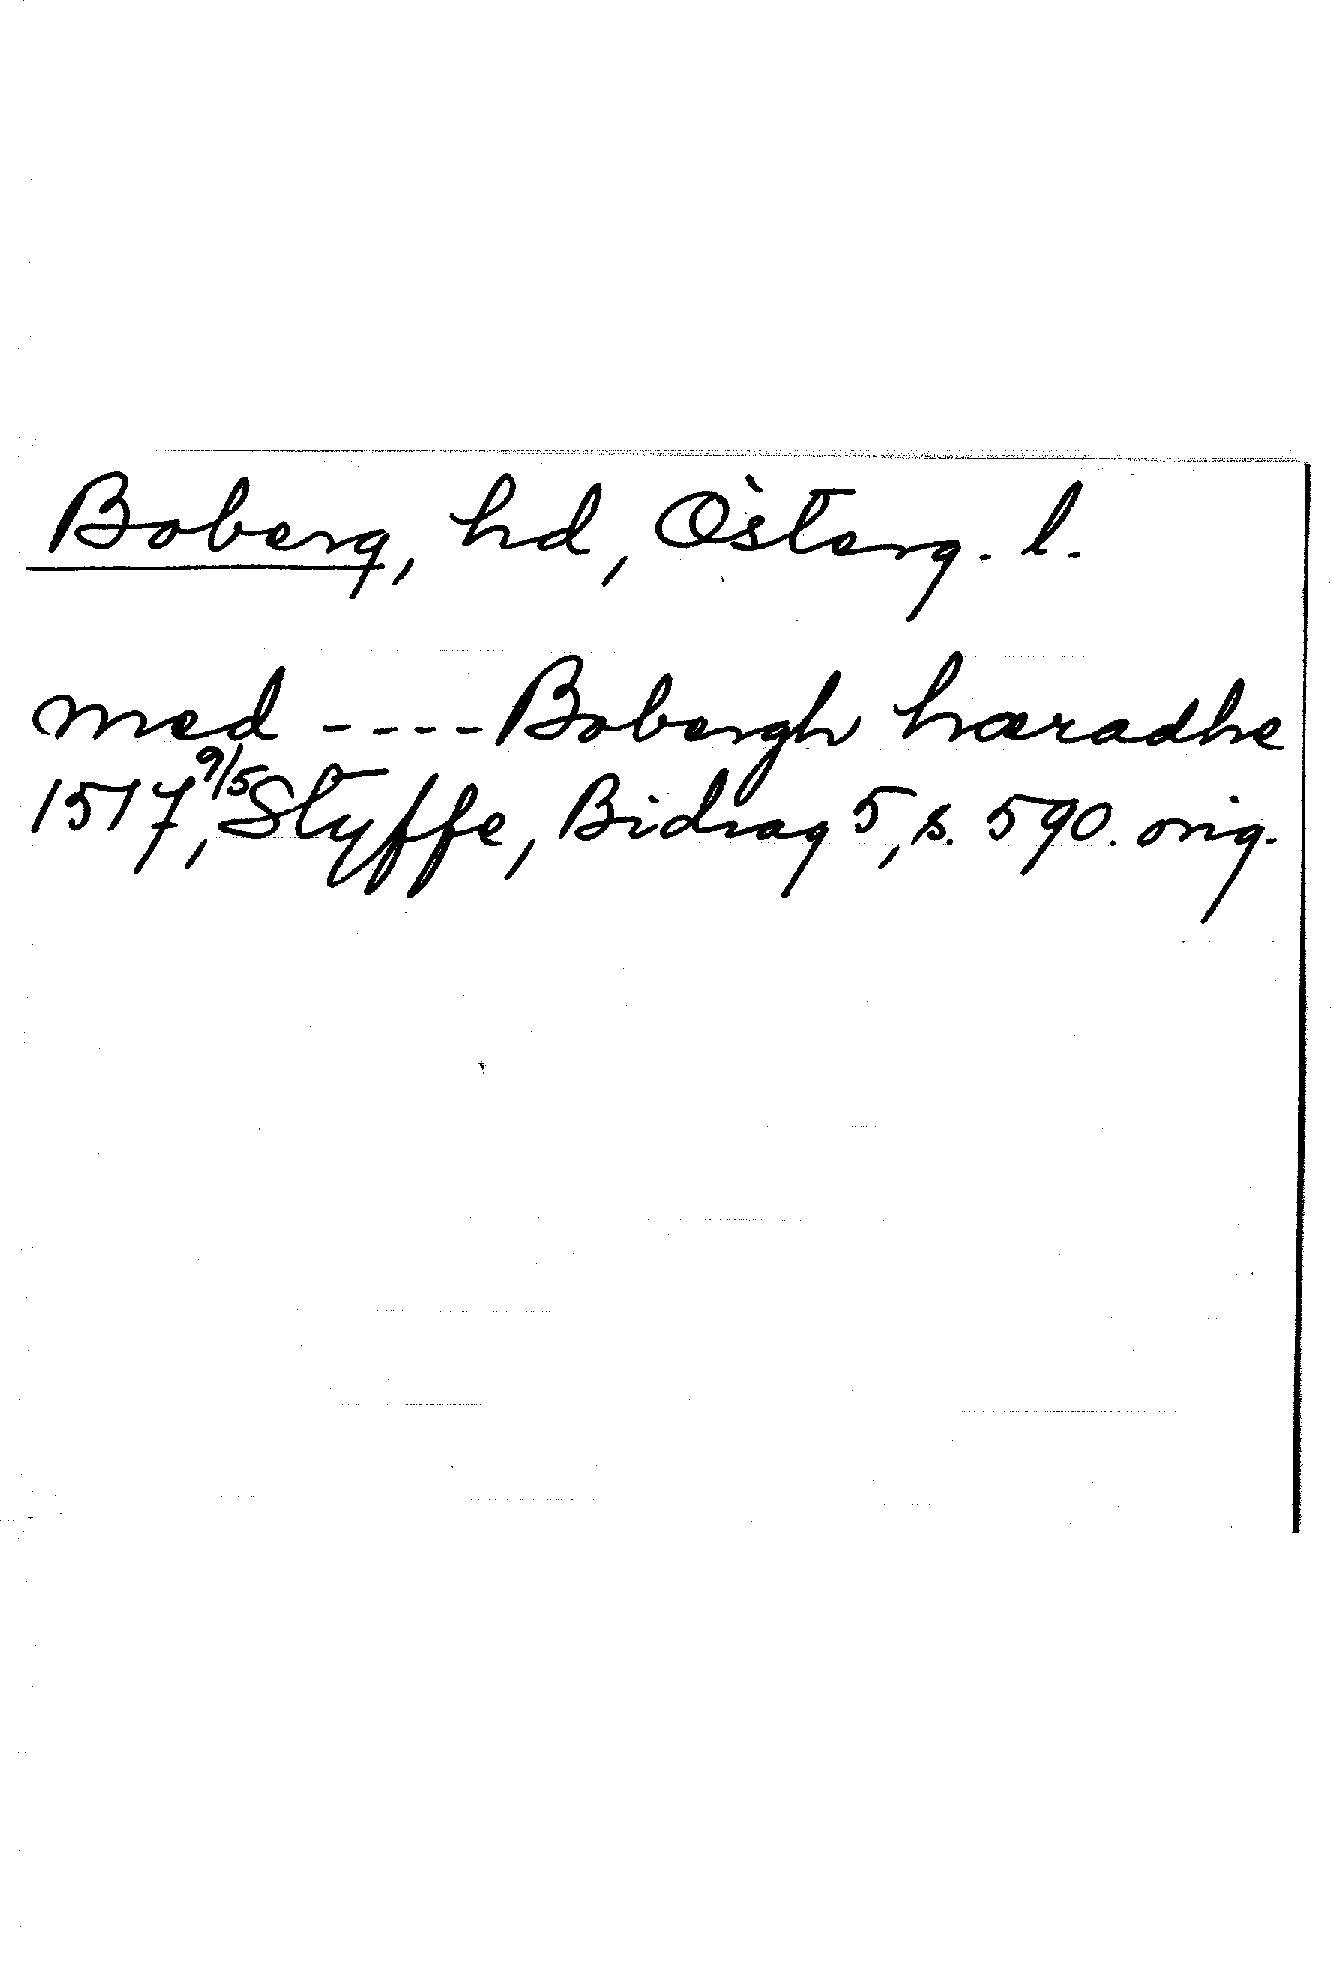 Boberg, hd, Österg. l.
med ---- Bobergh hæradhe
1517 9/5, Styffe, Bidrag 5, s. 590. orig.